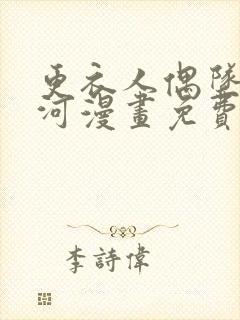 更衣人偶墜
河漫畫免費
李詩偉